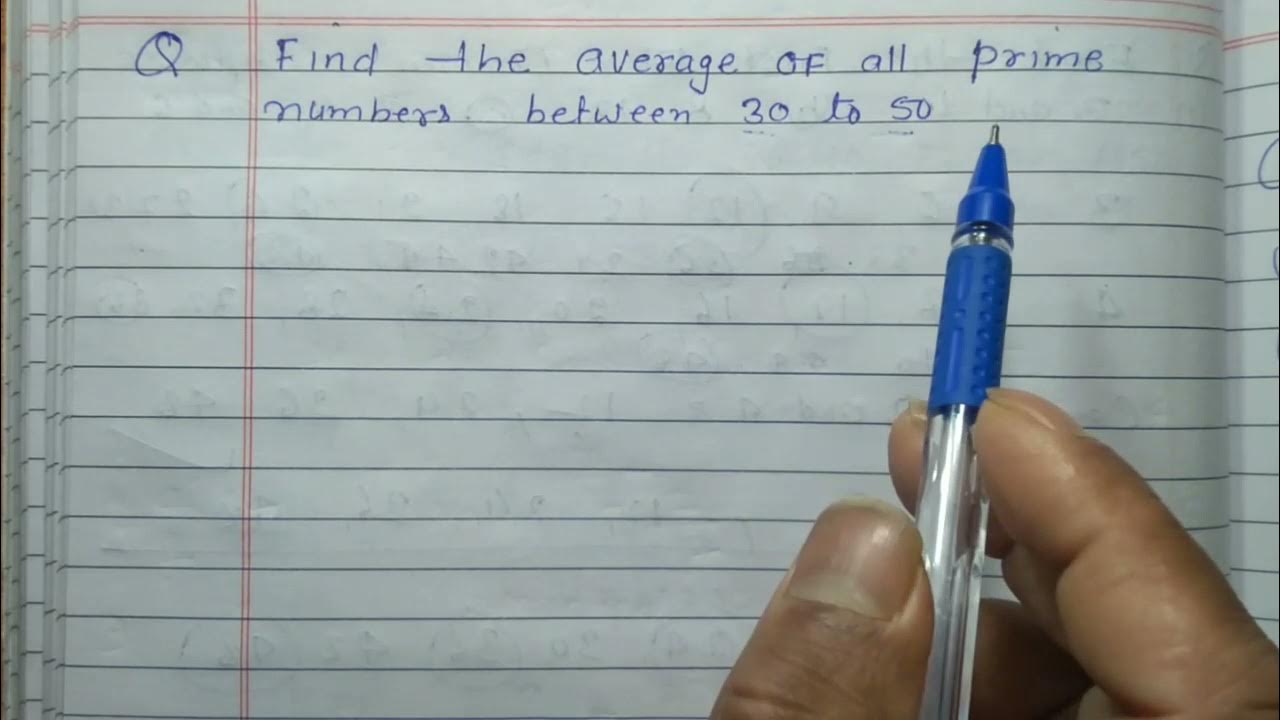 Q Find the average of all prime
numbers between 30 to 50